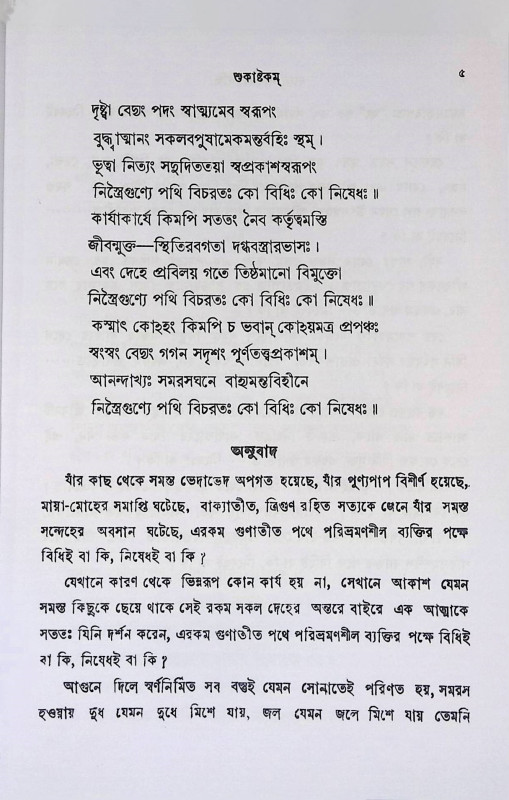 শুকাষ্টকম্ ৫
দৃষ্ট্বা বেদ্যং পদং স্বাত্মমেব স্বরূপং
বুদ্ধ্বাত্মানং সকলবপুষামেকমন্তর্বহিঃ স্থম্।
ভূত্বা নিত্যং সদুদিততয়া স্বপ্রকাশস্বরূপং
নিস্ত্রৈগুণ্যে পথি বিচরতঃ কো বিধিঃ কো নিষেধঃ॥
কার্যাকার্যে কিমপি সততং নৈব কর্তৃত্বমস্তি
জীবন্মুক্ত—স্থিতিরবগতা দগ্ধবস্ত্রারভাসঃ।
এবং দেহে প্রবিলয় গতে তিষ্ঠমানো বিমুক্তো
নিস্ত্রৈগুণ্যে পথি বিচরতঃ কো বিধিঃ কো নিষেধঃ॥
কস্মাৎ কোঽহং কিমপি চ ভবান্ কোঽয়মত্র প্রপঞ্চঃ
স্বংস্বং বেদ্যং গগন সদৃশং পূর্ণতত্ত্বপ্রকাশম্।
আনন্দাখ্যঃ সমরসঘনে বাহ্যমন্তবিহীনে
নিস্ত্রৈগুণ্যে পথি বিচরতঃ কো বিধিঃ কো নিষেধঃ॥
অনুবাদ
যাঁর কাছ থেকে সমস্ত ভেদাভেদ অপগত হয়েছে, যাঁর পুণ্যপাপ বিশীর্ণ হয়েছে,
মায়া-মোহের সমাপ্তি ঘটেছে, বাক্যাতীত, ত্রিগুণ রহিত সত্যকে জেনে যাঁর সমস্ত
সন্দেহের অবসান ঘটেছে, এরকম গুণাতীত পথে পরিভ্রমণশীল ব্যক্তির পক্ষে
বিধিই বা কি, নিষেধই বা কি?
যেখানে কারণ থেকে ভিন্নরূপ কোন কার্য হয় না, সেখানে আকাশ যেমন
সমস্ত কিছুকে ছেয়ে থাকে সেই রকম সকল দেহের অন্তরে বাইরে এক আত্মাকে
সততঃ যিনি দর্শন করেন, এরকম গুণাতীত পথে পরিভ্রমণশীল ব্যক্তির পক্ষে বিধিই
বা কি, নিষেধই বা কি?
আগুনে দিলে স্বর্ণনির্মিত সব বস্তুই যেমন সোনাতেই পরিণত হয়, সমরস
হওয়ায় দুধ যেমন দুধে মিশে যায়, জল যেমন জলে মিশে যায় তেমনি